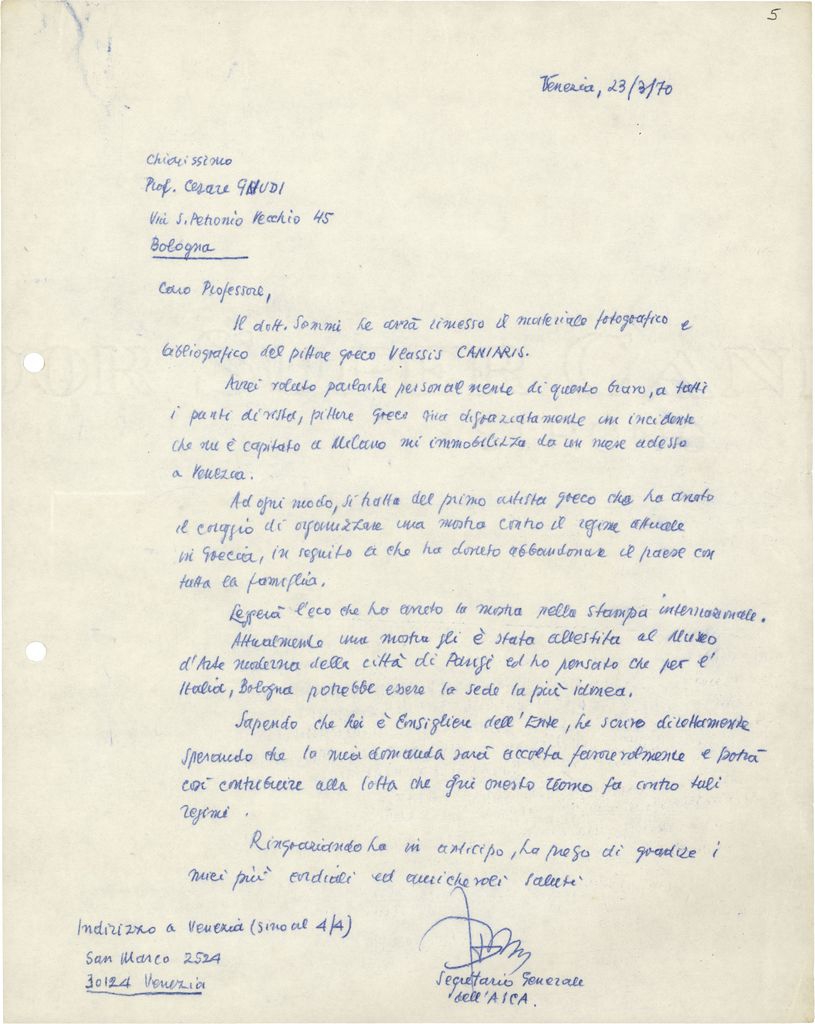 5
Venezia, 23/3/70
Chiarissimo
Prof. Cesare GNUDI
Via S. Petronio Vecchio 45
Bologna
Caro Professore,
Il dott. Sommi Le avrà rimesso il materiale fotografico e
bibliografico del pittore greco Vlassis CANIARIS.
Avrei voluto parlarLe personalmente di questo bravo, a tutti
i punti di vista, pittore greco ma disgraziatamente un incidente
che mi è capitato a Milano mi immobilizza da un mese adesso
a Venezia.
Ad ogni modo, si tratta del primo artista greco che ha avuto
il coraggio di organizzare una mostra contro il regime attuale
in Grecia, in seguito a che ha dovuto abbandonare il paese con
tutta la famiglia.
Leggerà l'eco che ha avuto la mostra nella stampa internazionale.
Attualmente una mostra gli è stata allestita al Museo
d'Arte moderna della città di Parigi ed ho pensato che per l'
Italia, Bologna potrebbe essere la sede la più idonea.
Sapendo che Lei è Consigliere dell'Ente, Le scrivo direttamente
sperando che la mia domanda sarà accolta favorevolmente e potrà
così contribuire alla lotta che ogni onesto Uomo fa contro tali
regimi.
RingraziandoLa in anticipo, La prego di gradire i
miei più cordiali ed amichevoli saluti
Indirizzo a Venezia (sino al 4/4)
San Marco 2524
30124 Venezia
Segretario Generale
dell'AICA.